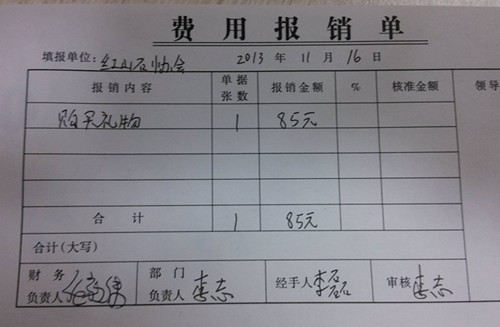 费用报销单
填报单位: 红山石协会 2013 年 11 月 16 日
报销内容 单据张数 报销金额 % 核准金额 领导
购买礼物 1 85元
合计 1 85元
合计(大写)
财务负责人 部门负责人 李志 经手人 李磊 审核 李志